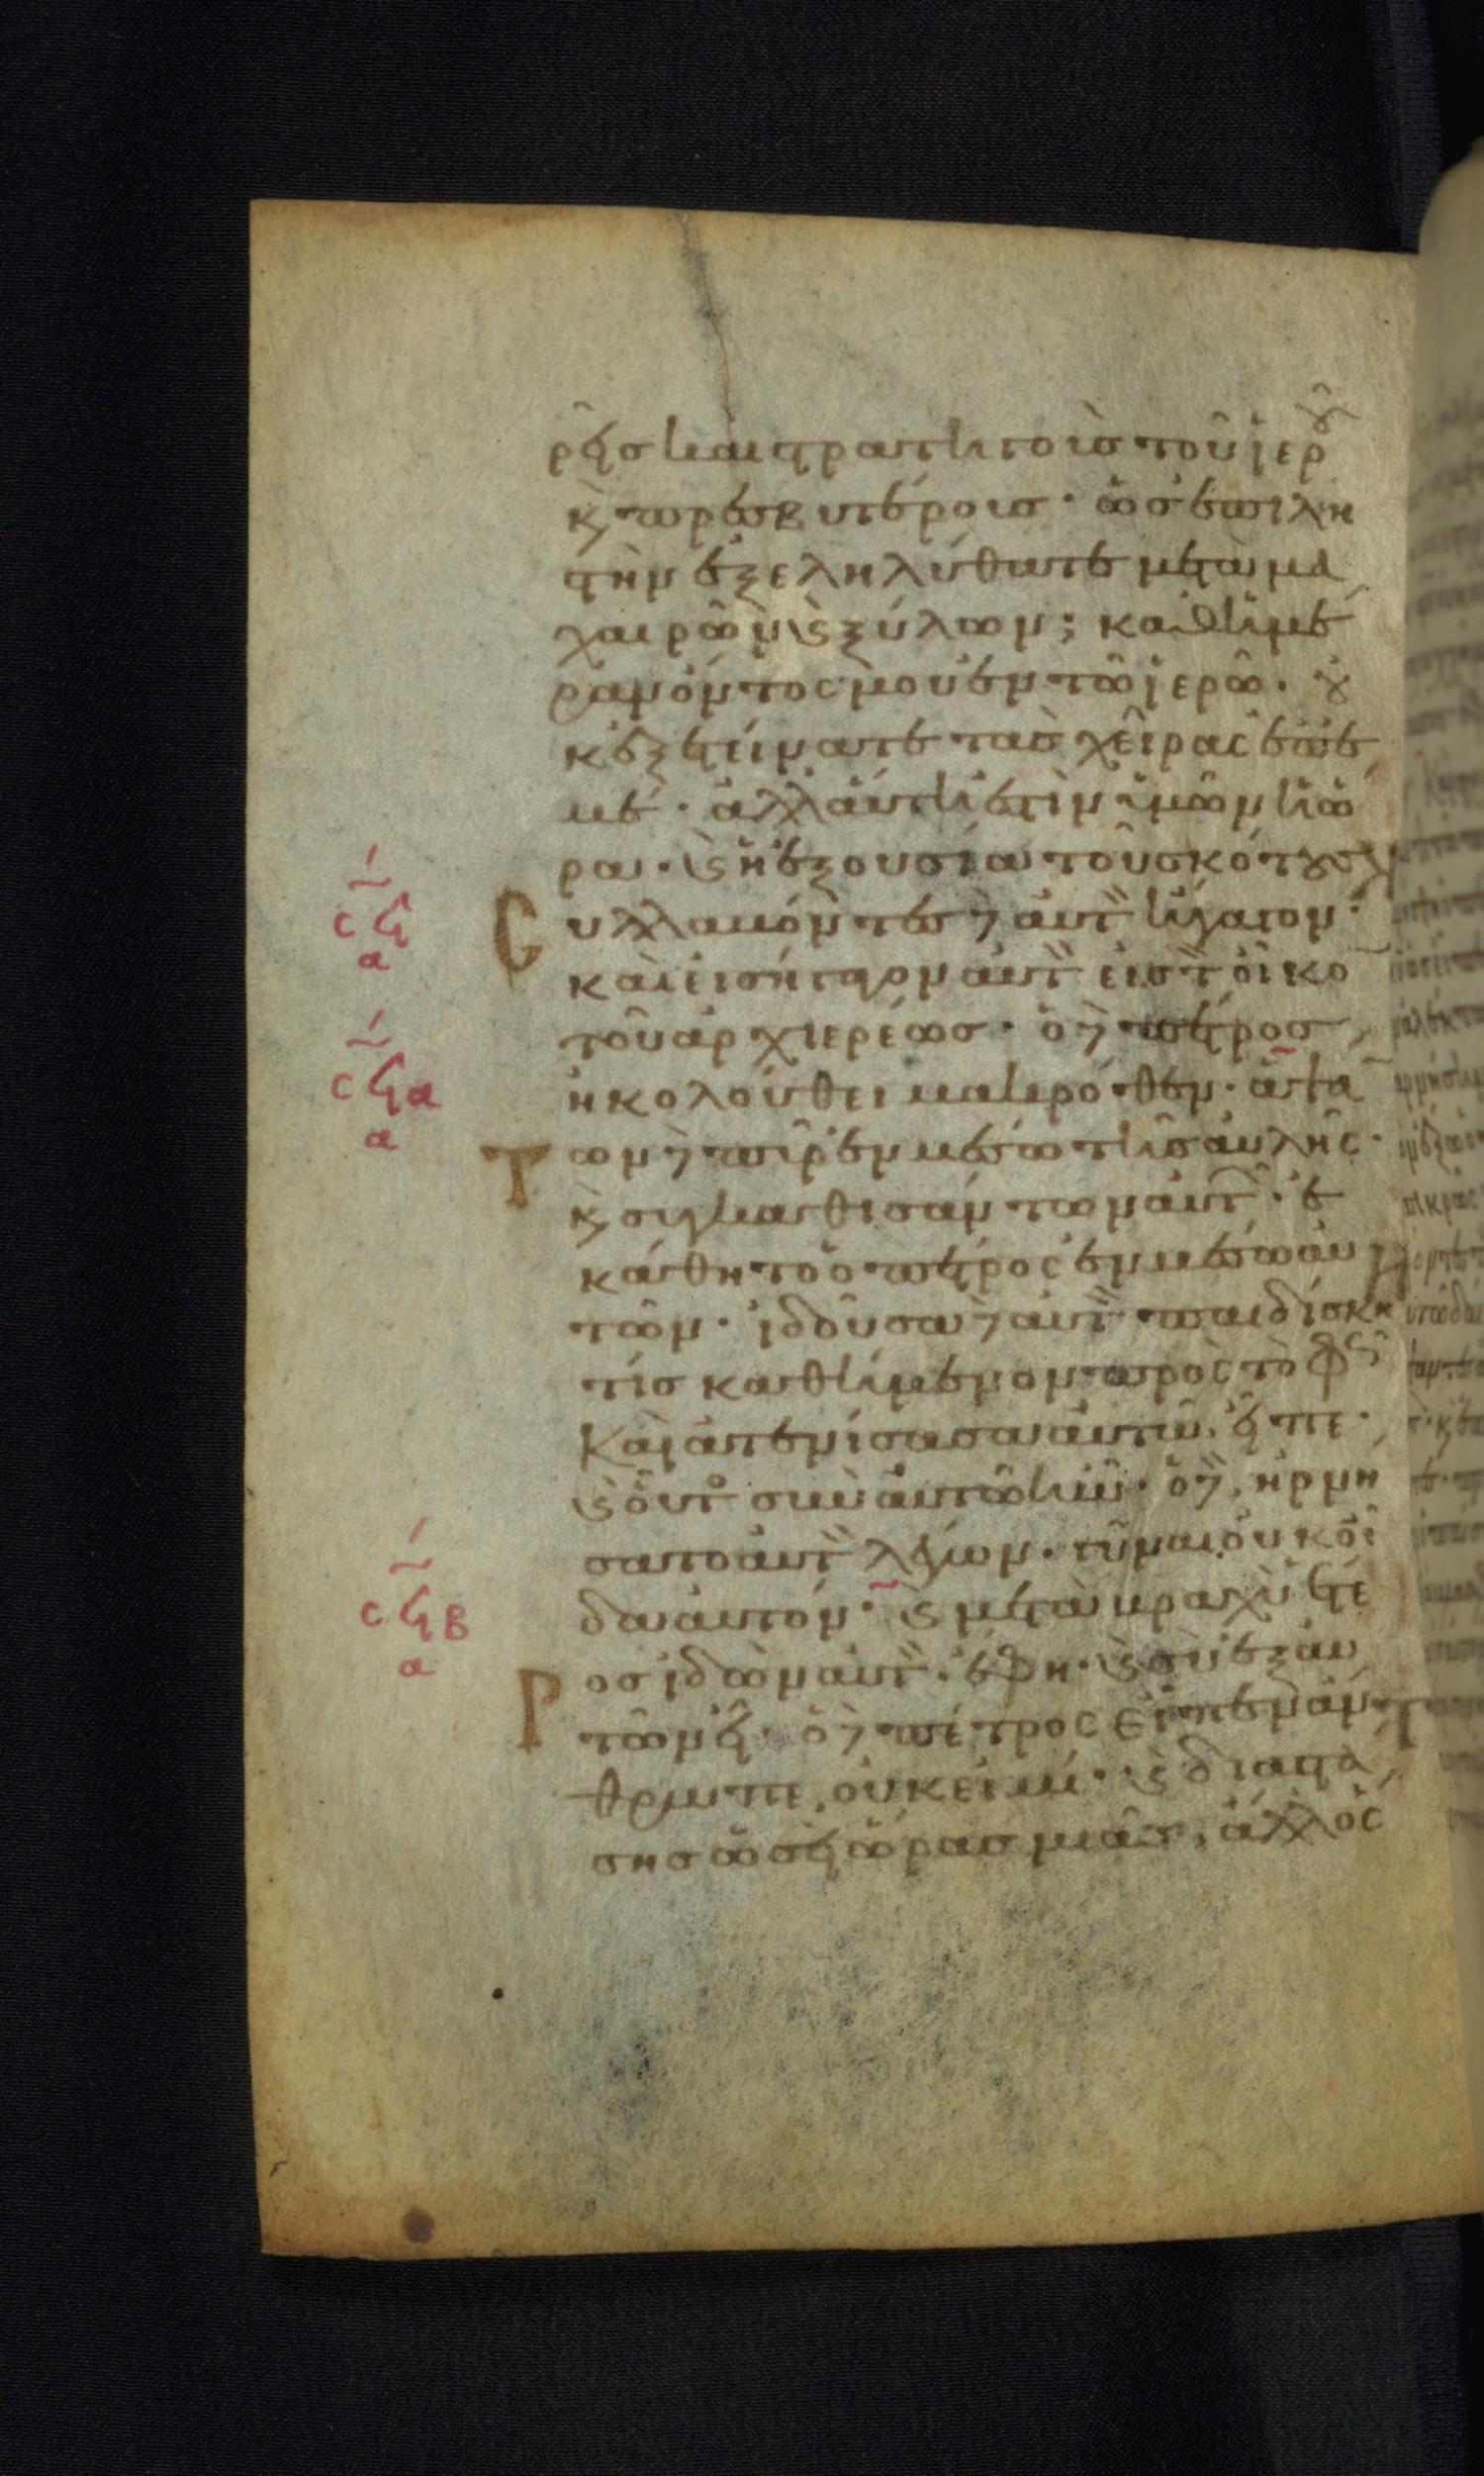 ρεῖς καὶ στρατηγοῖς τοῦ ἱεροῦ
κ πρεσβυτέροις· ὡς ἐπὶ λη
στὴν ἐξεληλύθατε μετὰ μα
χαιρῶν κ ξύλων; καθ ἡμέ
ραν ὄντος μου ἐν τῶ ἱερῶ. οὐ
κ ἐξετείνατε τὰς χεῖρας ἐπ ἐ
μέ· ἀλλ αὕτη ἐστὶν ὑμῶν ἡ ὥ
ρα· κ ἡ ἐξουσία τοῦ σκότους
Συλλαβόντες δὲ αὐτ ἤγαγον·
καὶ εἰσήγαγον αὐτ εἰς τ οἶκο
τοῦ ἀρχιερέως· ὁ δὲ πέτρος
ἠκολούθει μακρόθεν· ἁψά
Των δὲ πῦρ ἐν μέσω τῆς αὐλῆς·
κ συγκαθισάντων αὐτ· ἐ
κάθητο ὁ πέτρος ἐν μέσω αὐ
τῶν· ἰδοῦσα δὲ αὐτ παιδίσκη
τίς καθήμενον πρὸς τὸ φῶς
Καὶ ἀτενίσασα αὐτῶ. εἶπε·
κ οὗτος σὺν αὐτῶ ἦν· ὁ δὲ, ἠρνή
σατο αὐτ λέγων· γύναι οὐκ οἶ
δα αὐτόν· κ μετὰ βραχὺ ἕτε
Ρος ἰδὼν αὐτ· ἔφη· κ σὺ ἐξ αὐ
τῶν εἶ· ὁ δὲ πέτρος εἶπεν ἄν
θρωπε, οὐκ εἰμί· κ διαστά
σης ὡσεὶ ὥρας μιᾶς, ἄλλος